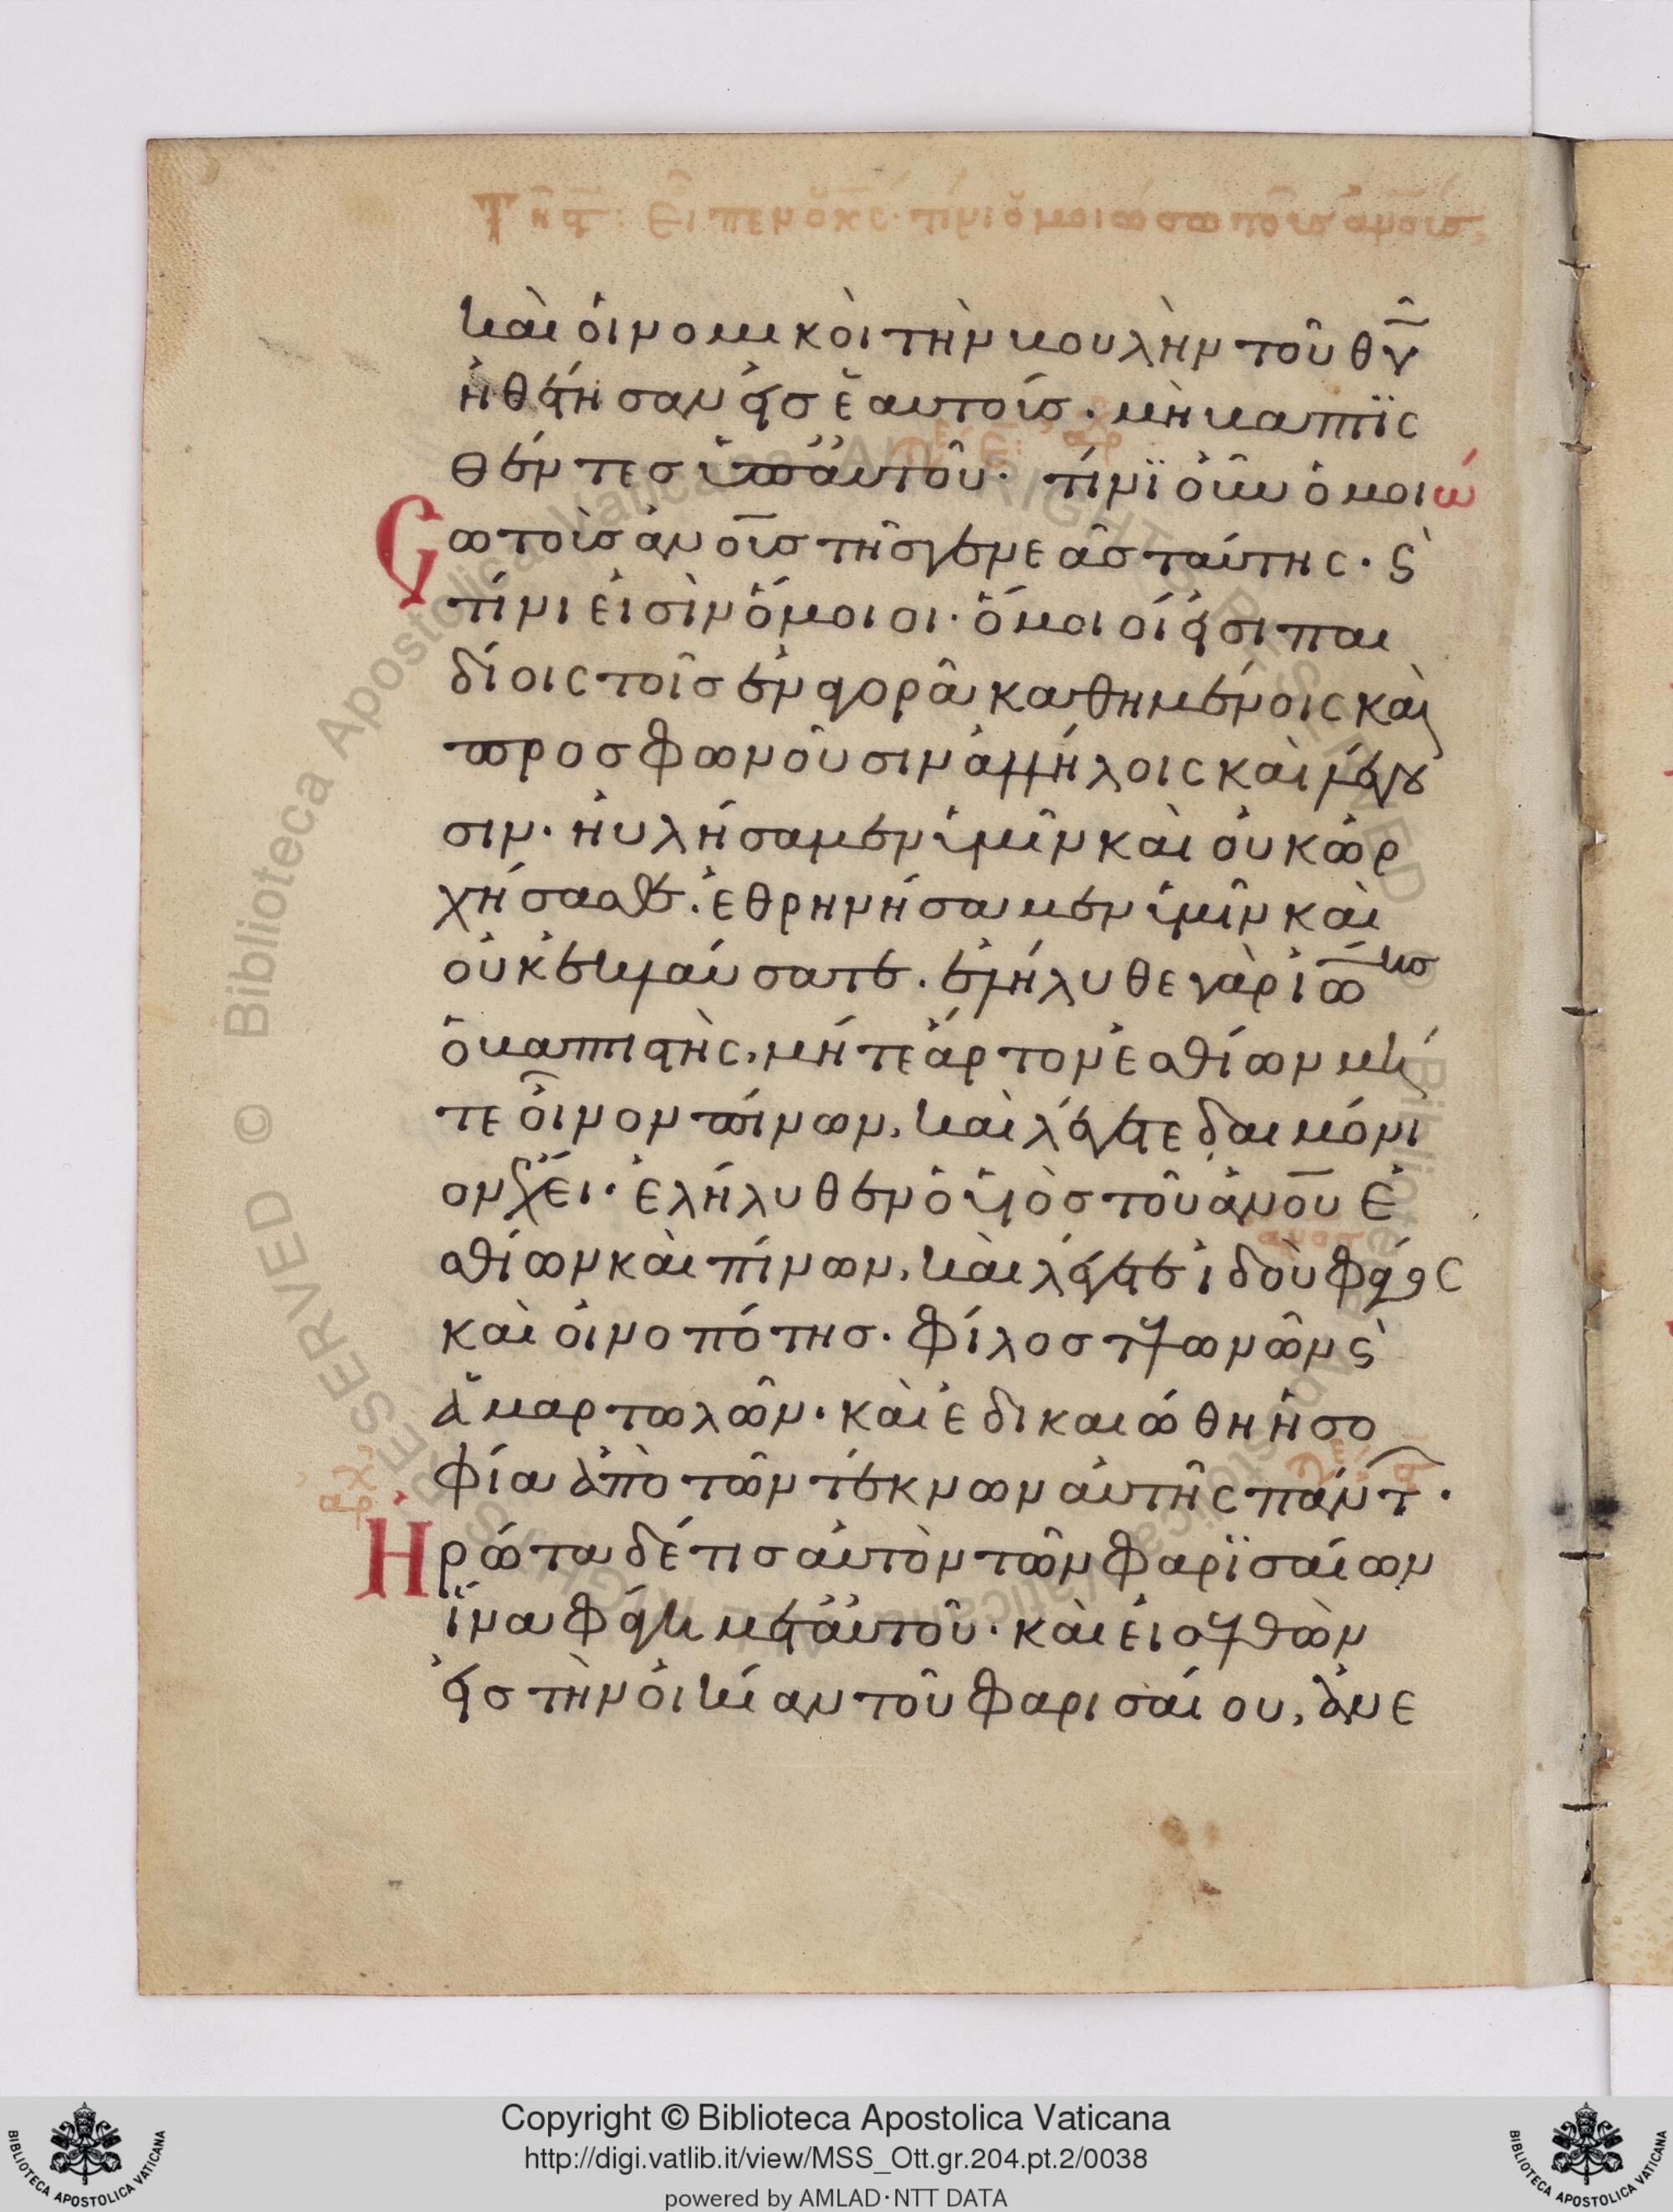 καὶ ὁι νομικὸι τὴν βουλὴν τοῦ θυ
ἠθέτησαν εἰσ ἑαυτοίσ. μὴ βαπτϊς
θέντεσ ὑπ αὐτοῦ. τίνϊ οὖν ὁμοιώ
σω τοὶσ ἀνοισ τῆσ γενεᾶσ ταύτης. ϛ
τίνι εἰσὶν ὅμοιοι. ὅμοιοί εἰσι παι
δίοις τοῖσ ἐν ἀγορᾶ καθημένοις καὶ
προσφωνοῦσιν ἀλλήλοις καὶ λέγου
σιν. ηὐλήσαμεν ὑμῖν καὶ ὀυκ ὠρ
χήσασθε. ἐθρηνήσαμεν ὑμῖν καὶ
οὐκ ἐκλαύσατε. ἐλήλυθε γὰρ ἰω
ὁ βαπτιστὴς, μήτε ἄρτον ἐσθίων μή
τε ὅινον πίνων, καὶ λέγετε δαιμόνι
ον ἔχει. ἐλήλυθεν ὁ ὑιὸσ τοῦ ἀνου ἐ
σθίων καὶ πίνων, καὶ λέγετε ἰδοὺ φάγος
καὶ ὀινοπότησ. φίλοσ τελωνῶν ϛ
ἁμαρτωλῶν. καὶ ἐδικαιώθη ἡ σο
φία ἀπὸ τῶν τέκνων αὐτῆς πάντ.
Ἠρώτα δέ τισ αὐτὸν τῶν φαρϊσαίων
ἵνα φάγη μετ αὐτοῦ. καὶ εἰσελθὼν
εἰσ τὴν ὀικίαν τοῦ φαρισαίου, ἀνε
Biblioteca Apostolica Vaticana ALL RIGHTS RESERVED ©
Copyright © Biblioteca Apostolica Vaticana
http://digi.vatlib.it/view/MSS_Ott.gr.204.pt.2/0038
powered by AMLAD·NTT DATA
BIBLIOTECA APOSTOLICA VATICANA
BIBLIOTECA APOSTOLICA VATICANA